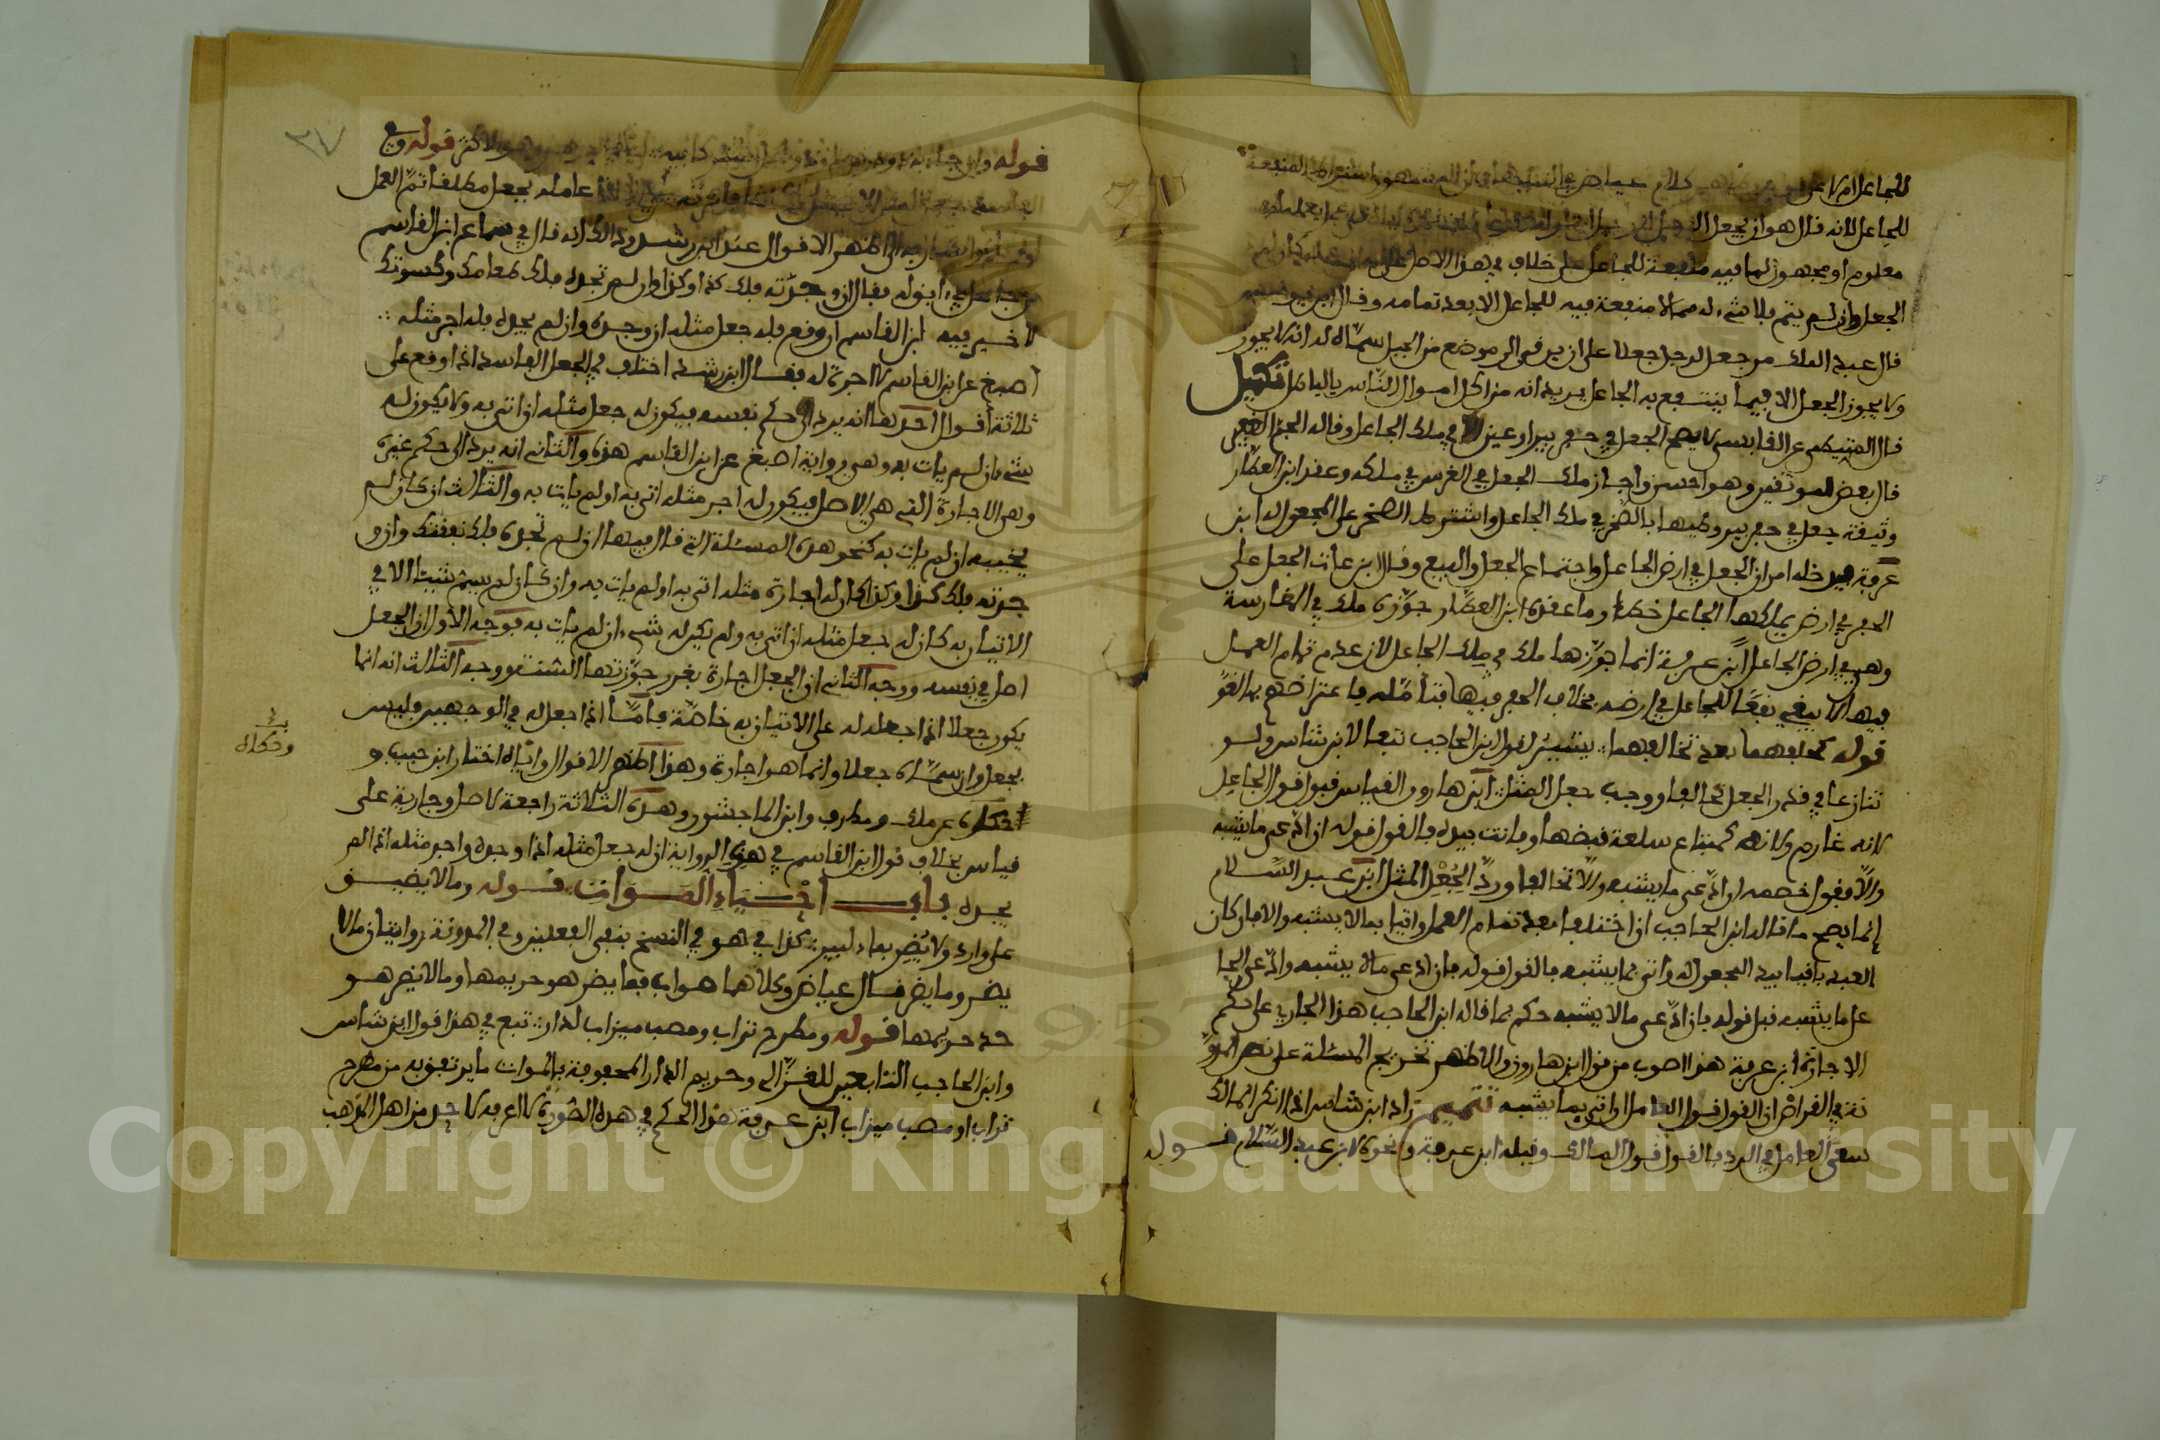 للجاعل ام لا
للجاعل لانه قال هو ان يجعل الرجل للرجل
معلوم او مجهول مما فيه منفعة للجاعل على خلاف في هذا الاصل
الجعل وان لم يتم فلا شيء له مما لا منفعة فيه للجاعل الا بعد تمامه وقال ابن
قال عبد الملك من جعل لرجل جعلا على ان يرقى الى موضع من الجبل سماه له انه لا يجوز
ولا يجوز الجعل الا فيما ينتفع به الجاعل يريد انه من اكل اموال الناس بالباطل تكميل
قال المتيطي عن القابسي لا يصح الجعل في حفر بير او عين الا في ملك الجاعل وقاله الجم الغفير
قال بعض الموثقين وهو احسن واجاز ملك الجعل في الغرس في ملكه وعقد ابن العطار
وثيقة جعل في حفر بير وطيها بالصخر في ملك الجاعل واشترط الصخر على المجعول له ابن
عرفة يدخله امران الجعل في ارض الجاعل واجتماع الجعل والبيع وقال ابن عات الجعل على
الحفر في ارض يملكها الجاعل خطأ وما عقده ابن العطار جوزه ملك في المغارسة
وهي في ارض الجاعل ابن عرفة انما جوزها ملك في ملك الجاعل لان عدم تمام العمل
فيها لا يبقي نفعا للجاعل في ارضه بخلاف الحفر فيها فتأمله فاعتراضهم به لغو
قوله كحلفهما بعد تخالفهما يشير لقول ابن الحاجب تبعا لابن شاس ولو
تنازعا في قدر الجعل تحالفا ووجب جعل المثل ابن هارون القياس قبول قول الجاعل
لانه غارم ولانه كمبتاع سلعة قبضها وفاتت بيده فالقول قوله ان ادعى ما يشبه
والا فقول خصمه ان ادعى ما يشبه والا تحالفا ورد لجعل المثل ابن عبد السلام
انما يصح ما قاله ابن الحاجب اذا اختلفا بعد تمام العمل واتيا بما لا يشبه والا فان كان
العبد باقيا بيد المجعول له واتى بما يشبه فالقول قوله فان ادعى ما لا يشبه وادعى الجا
عل ما يشبه قبل قوله فان ادعى ما لا يشبه حكم بما قاله ابن الحاجب هذا الجاري على حكم
الاجارة ابن عرفة هذا اصوب من قول ابن هارون والاظهر تخريج المسئلة على نص المدو
نة في القراض ان القول قول العامل ان اتى بما يشبه تتميم زاد ابن شاس اذا انكر المالك
سعي العامل في الرد فالقول قول المالك وقبله ابن عرفة ونحوه لابن عبد السلام قوله
٣٧
قوله والاكثر قوله وفي
عامله بجعل مطلقا تم العمل
الى اظهر الاقوال عند ابن رشد وذلك انه قال في سماع ابن القاسم
فقال ان وجدته فلك كذا وكذا وان لم تجده فلك طعامك وكسوتك
لا خير فيه ابن القاسم ان وقع فله جعل مثله ان وجده وان لم يجده فله اجر مثله
اصبغ عن ابن القاسم لا اجرة له فقال ابن رشد اختلف في الجعل الفاسد اذا وقع على
ثلاثة اقوال احدها انه يرد الى حكم نفسه فيكون له جعل مثله ان اتى به ولا يكون له
شيء ان لم يات به وهي رواية اصبغ عن ابن القاسم هذه والثاني انه يرد الى حكم غيره
وهي الاجارة التي هي الاصل فيكون له اجر مثله اتى به او لم يات به والثالث ان كان لم
يخيبه ان لم يات به كنحو هذه المسئلة التي قال فيها ان لم تجده فلك نفقتك وان و
جدته فلك كذا وكذا كان له اجارة مثله اتى به او لم يات به وان كان لم يسم شيئا الا في
الاتيان به كان له جعل مثله ان اتى به ولم يكن له شيء ان لم يات به فوجه الاول ان الجعل
اصل في نفسه ووجه الثاني ان الجعل اجارة بغرر جوزتها السنة ووجه الثالث انه انما
يكون جعلا اذا جعله له على الاتيان به خاصة فاما اذا جعل له في الوجهين فليس
بجعل وان سمياه جعلا وانما هو اجارة وهذا اظهر الاقوال واياه اختار ابن حبيب و
حكاه عن ملك ومطرف وابن الماجشون وهذه الثلاثة راجعة لاصل وجارية على
قياس بخلاف قول ابن القاسم في هذه الرواية ان له جعل مثله اذا وجده واجر مثله اذا لم
يجده باب احياء الموات قوله وما لا يضيق
على وارد ولا يضر بماء لبير كذا في هو في النسخ بنفي الفعلين وفي المدونة روايتان ما لا
يضر وما يضر قال عياض وكلاهما صواب فما يضر هو حريمها وما لا يضر هو
حد حريمها قوله ومطرح تراب ومصب ميزاب لدار تبع في هذا قول ابن شاس
وابن الحاجب التابعين للغزالي وحريم الدار المحفوفة بالموات ما يرتفق به من مطرح
تراب او مصب ميزاب ابن عرفة هذا الحكم في هذه الصورة لا اعرفه لاحد من اهل المذهب
وحكاه
Copyright © King Saud University
1957